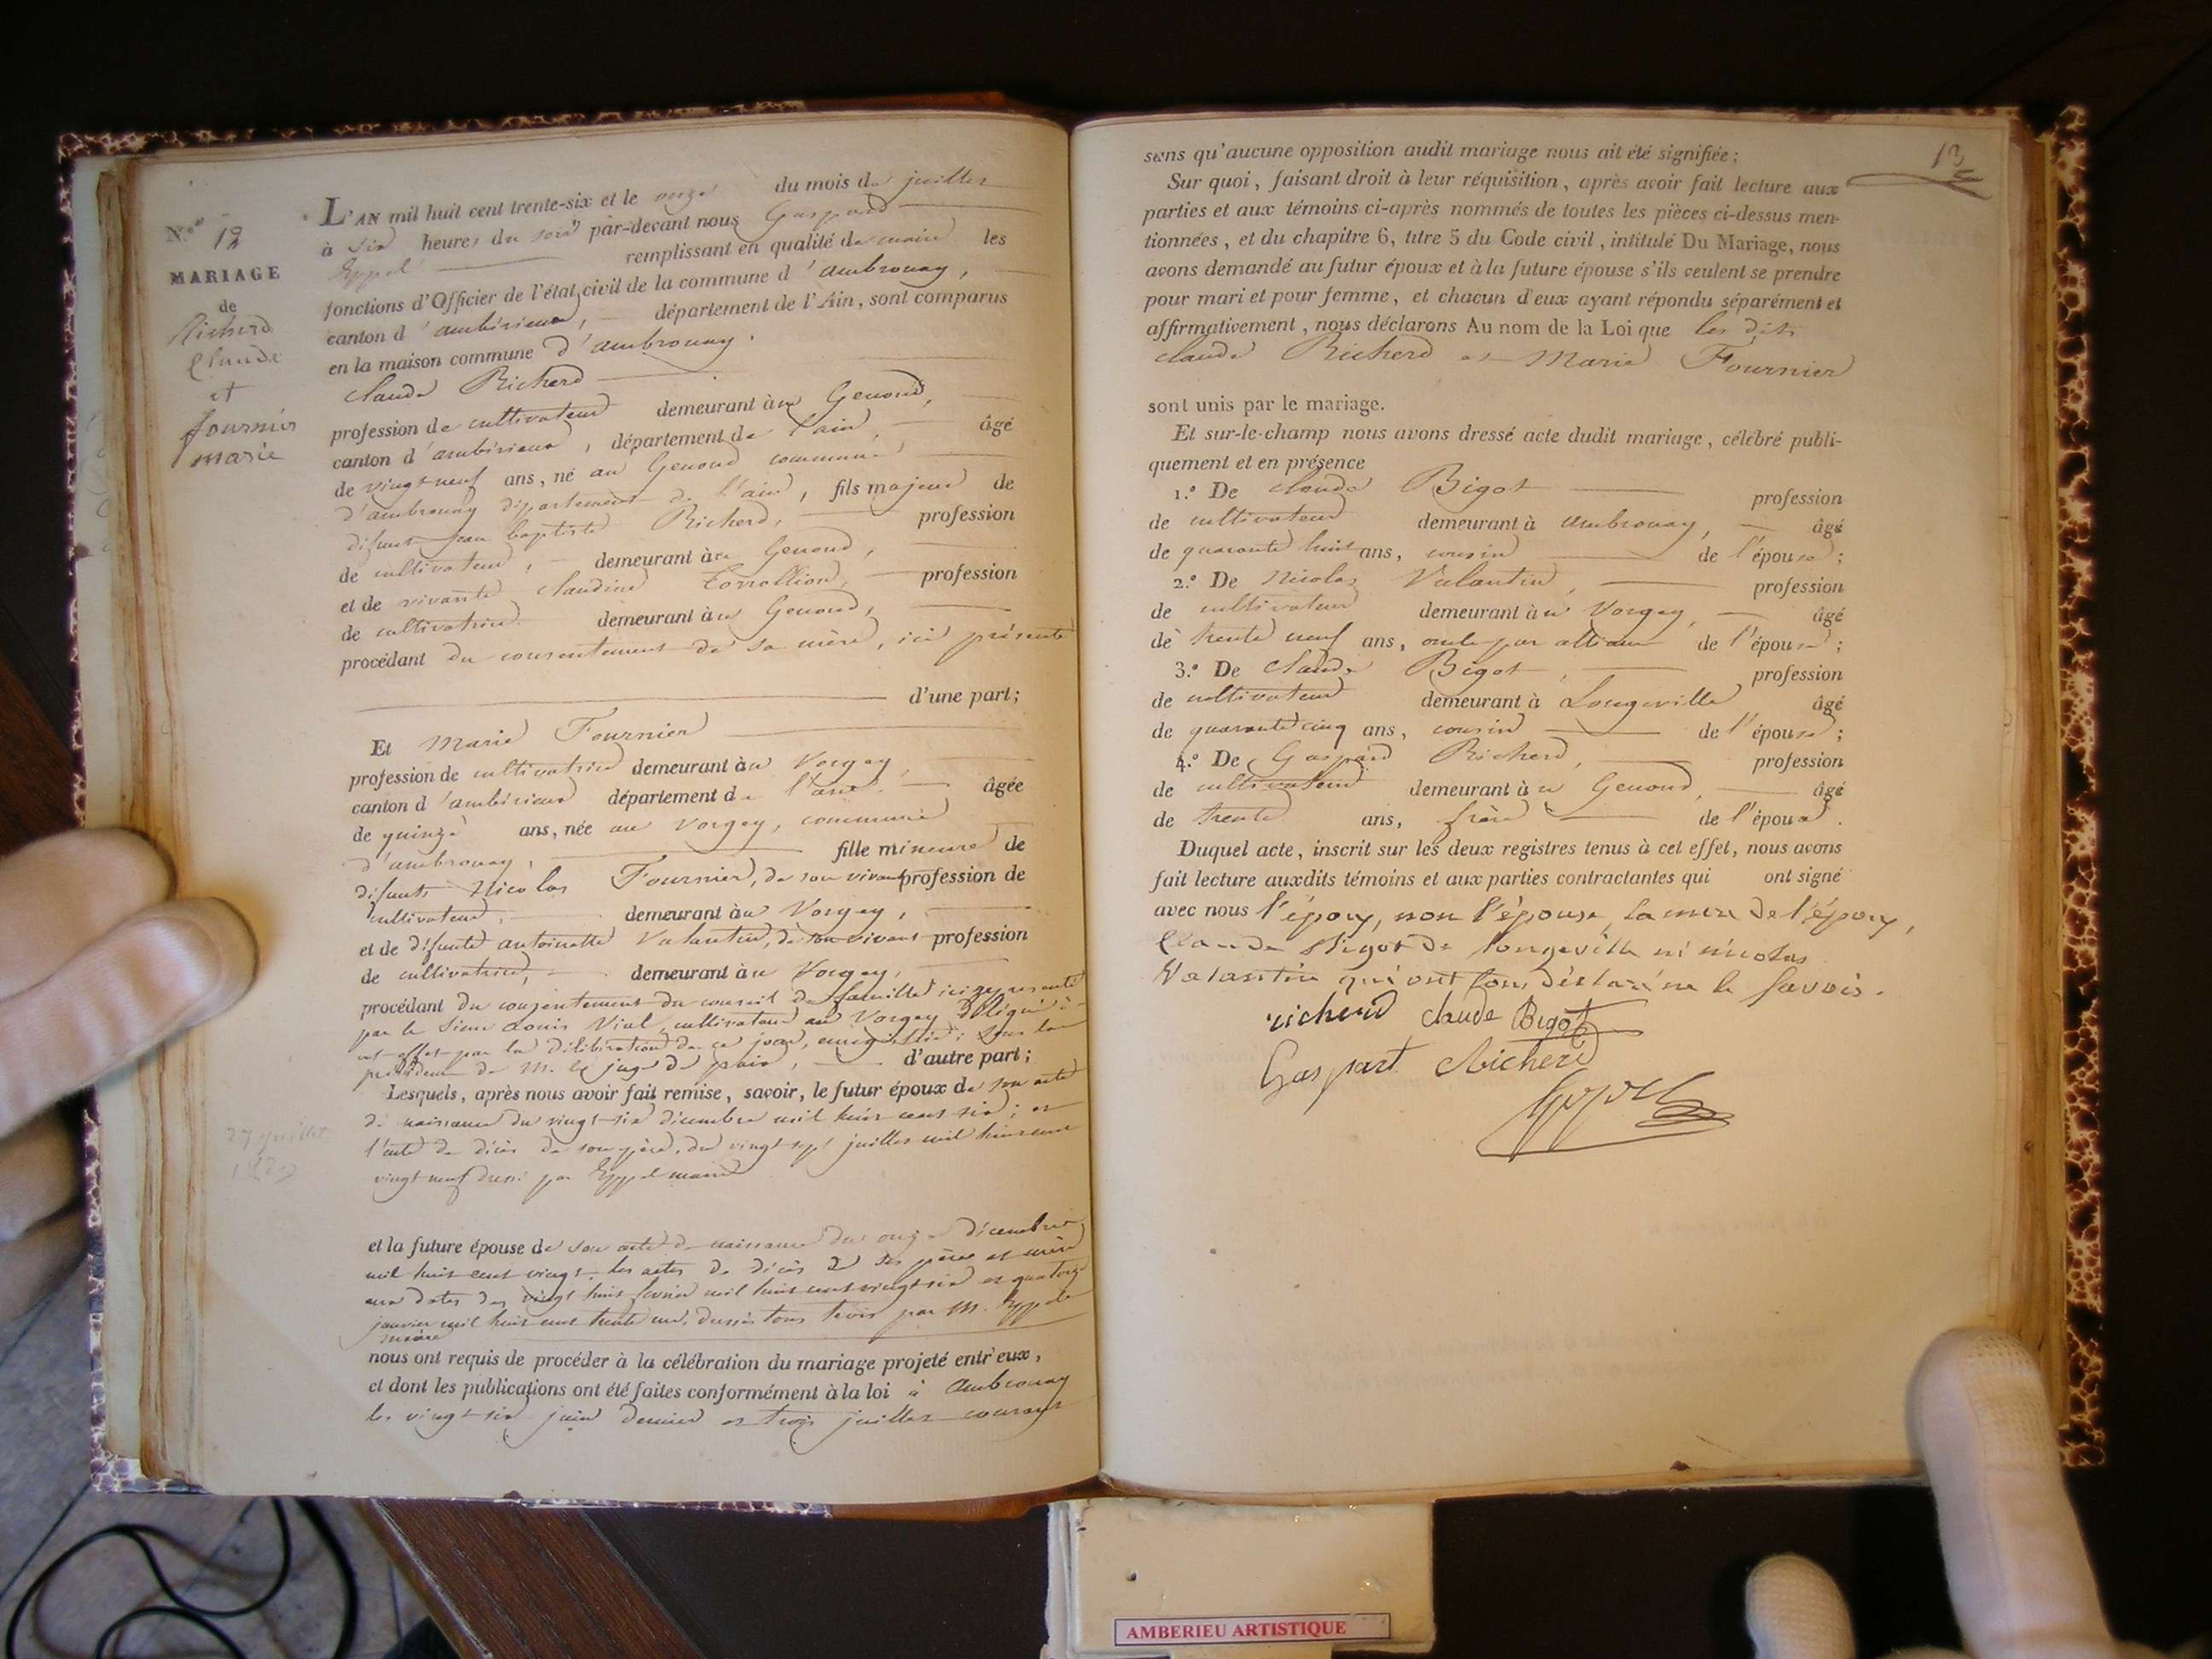 N.º 12
MARIAGE
de
Richerd
Claude
et
fournier
marie
27 juillet
L'AN mil huit cent trente-six et le onze du mois de juillet
à six heures du soir par-devant nous Gaspard
Eppel remplissant en qualité de maire les
fonctions d'Officier de l'état civil de la commune d'ambronay,
canton d'ambérieux, département de l'Ain, sont comparus
en la maison commune d'ambronay.
claude Richerd
profession de cultivateur demeurant au Genoud,
canton d'ambérieux, département de l'ain, âgé
de vingt neuf ans, né au Genoud commune
d'ambronay département de l'ain, fils majeur de
défunt jean baptiste Richerd, profession
de cultivateur, demeurant au Genoud,
et de vivante claudine profession
de cultivatrice demeurant au Genoud,
procédant du consentement de sa mère, ici présente
d'une part;
Et Marie Fournier
profession de cultivatrice demeurant au Vorgey,
canton d'ambérieux département de l'ain, âgée
de quinze ans, née au Vorgey, commune
d'ambronay, fille mineure de
défunts Nicolas Fournier, de son vivant profession de
cultivateur, demeurant au Vorgey,
et de défunte antoinette Valantin, de son vivant profession
de cultivatrice, demeurant au Vorgey,
procédant du consentement du conseil de famille ici représenté
par le sieur Louis Vial, cultivateur au Vorgey délégué à
cet effet par la délibération de ce jour, enregistrée; sous la
présidence de M. le juge de paix, d'autre part;
Lesquels, après nous avoir fait remise, savoir, le futur époux de son acte
de naissance du vingt six décembre mil huit cent six; et
l'acte de décès de son père, du vingt sept juillet mil huit cent
vingt neuf dressé par Eppel maire
et la future épouse de son acte de naissance du onze décembre
mil huit cent vingt, les actes de décès de ses père et mère
aux dates des vingt huit février mil huit cent vingt six et quatorze
janvier mil huit cent trente un, dressés tous trois par M. Eppel
maire
nous ont requis de procéder à la célébration du mariage projeté entr'eux,
et dont les publications ont été faites conformément à la loi à ambronay
les vingt six juin dernier et trois juillet courant
13
sans qu'aucune opposition audit mariage nous ait été signifiée;
Sur quoi, faisant droit à leur réquisition, après avoir fait lecture aux
parties et aux témoins ci-après nommés de toutes les pièces ci-dessus men-
tionnées, et du chapitre 6, titre 5 du Code civil, intitulé Du Mariage, nous
avons demandé au futur époux et à la future épouse s'ils veulent se prendre
pour mari et pour femme, et chacun d'eux ayant répondu séparément et
affirmativement, nous déclarons Au nom de la Loi que les dits
claude Richerd et Marie Fournier
sont unis par le mariage.
Et sur-le-champ nous avons dressé acte dudit mariage, célébré publi-
quement et en présence
1.º De claude Bigot profession
de cultivateur demeurant à ambronay, âgé
de quarante huit ans, cousin de l'épouse;
2.º De Nicolas Valantin, profession
de cultivateur demeurant au Vorgey, âgé
de trente neuf ans, oncle par alliance de l'épouse;
3.º De Claude Bigot, profession
de cultivateur demeurant à Longeville âgé
de quarante cinq ans, cousin de l'épouse;
4.º De Gaspard Richerd, profession
de cultivateur demeurant au Genoud, âgé
de trente ans, frère de l'époux.
Duquel acte, inscrit sur les deux registres tenus à cet effet, nous avons
fait lecture auxdits témoins et aux parties contractantes qui ont signé
avec nous l'époux, non l'épouse, la mère de l'époux,
Claude Bigot de longeville ni nicolas
Valantin qui ont tous déclaré ne le savoir.
richerd claude Bigot
Gaspart Richerd
Eppel
AMBERIEU ARTISTIQUE